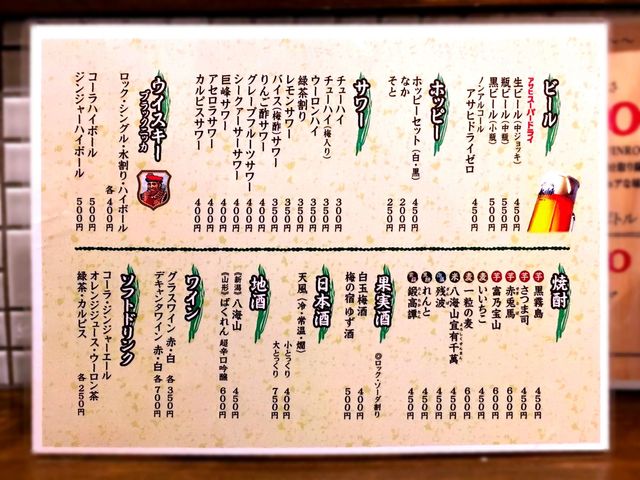 ビール
アサヒスーパードライ
生ビール(中ジョッキ) 450円
瓶ビール(中瓶) 550円
黒ビール(小瓶) 500円
ノンアルコール
アサヒドライゼロ 450円
ホッピー
ホッピーセット(白・黒) 450円
なか 250円
そと 200円
サワー
チューハイ 300円
チューハイ(梅入り) 350円
ウーロンハイ 350円
緑茶割り 350円
レモンサワー 350円
バイス(梅酢)サワー 350円
りんご酢サワー 400円
グレープフルーツサワー 400円
シークァーサーサワー 400円
巨峰サワー 400円
アセロラサワー 400円
カルピスサワー 400円
ウイスキー
ブラックニッカ
ロック・シングル・水割り・ハイボール 各400円
コーラハイボール 500円
ジンジャーハイボール 500円
焼酎
芋 黒霧島 450円
芋 さつま司 450円
芋 赤兎馬 600円
芋 富乃宝山 600円
麦 いいちこ 450円
麦 一粒の麦 600円
米 八海山宜有千萬 450円
残波 450円
れんと 450円
鍛高譚 450円
◎ロック・ソーダ割り
果実酒
白玉梅酒 400円
梅の宿 ゆず酒 500円
日本酒
天風(冷・常温・燗) 小とっくり 400円
大とっくり 750円
地酒
(新潟)八海山 450円
(山形)ばくれん 超辛口吟醸 600円
ワイン
グラスワイン 赤・白 各350円
デキャンタワイン 赤・白 各700円
ソフトドリンク
コーラ・ジンジャーエール
オレンジジュース・ウーロン茶
緑茶・カルピス 各250円